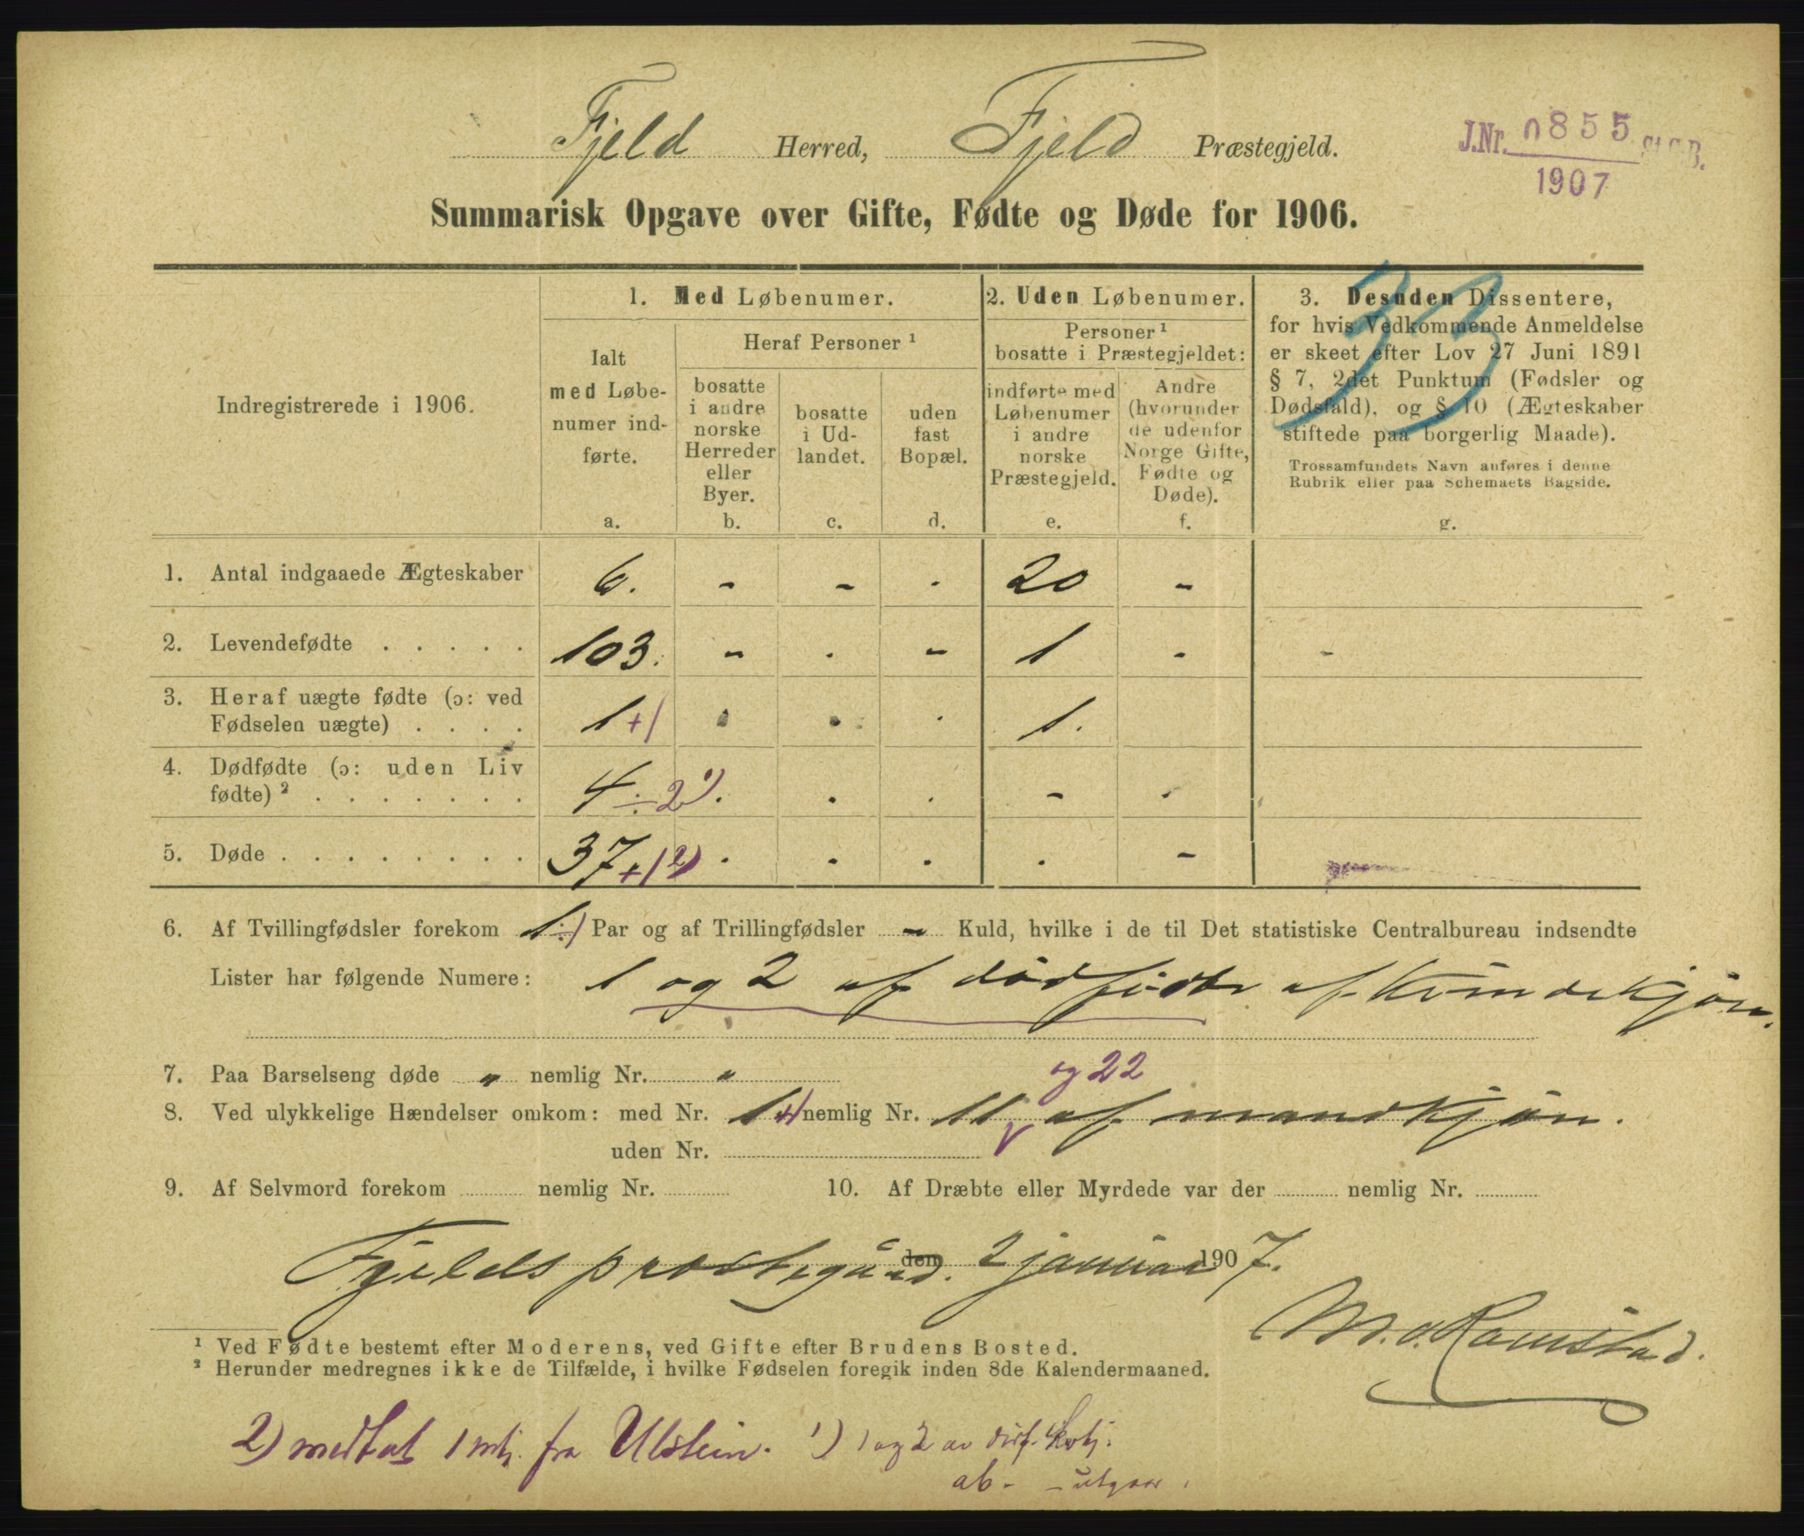 Fjeld Herred, Fjeld Præstegjeld.
J.Nr. 0855 St.C.B.
1907
Summarisk Opgave over Gifte, Fødte og Døde for 1906.
33
Indregistrerede i 1906.
1. Med Løbenumer.
Ialt
med Løbe-
numer ind-
førte.
a.
Heraf Personer ¹
bosatte
i andre
norske
Herreder
eller
Byer.
b.
bosatte
i Ud-
landet.
c.
uden
fast
Bopæl.
d.
2. Uden Løbenumer.
Personer ¹
bosatte i Præstegjeldet:
indførte med
Løbenumer
i andre
norske
Præstegjeld.
e.
Andre
(hvorunder
de udenfor
Norge Gifte,
Fødte og
Døde).
f.
3. Desuden Dissentere,
for hvis Vedkommende Anmeldelse
er skeet efter Lov 27 Juni 1891
§ 7, 2det Punktum (Fødsler og
Dødsfald), og § 10 (Ægteskaber
stiftede paa borgerlig Maade).
Trossamfundets Navn anføres i denne
Rubrik eller paa Schemaets Bagside.
g.
1. Antal indgaaede Ægteskaber 6. - - . 20 -
2. Levendefødte . . . . . 103. - . - 1 - -
3. Heraf uægte fødte (ɔ: ved
Fødselen uægte) . . . . 1+1 . . . 1.
4. Dødfødte (ɔ: uden Liv
fødte) ² . . . . . . . 4÷2¹) . . . - .
5. Døde . . . . . . . . 37+1²) . . . . -
6. Af Tvillingfødsler forekom 1÷1 Par og af Trillingfødsler - Kuld, hvilke i de til Det statistiske Centralbureau indsendte
Lister har følgende Numere: 1 og 2 af dödfödte af Kvindekjön.
7. Paa Barselseng døde " nemlig Nr. "
og 22
8. Ved ulykkelige Hændelser omkom: med Nr. 1+1 nemlig Nr. 11 af mandkjön.
uden Nr.
9. Af Selvmord forekom nemlig Nr. 10. Af Dræbte eller Myrdede var der nemlig Nr.
Fjelds prestegård. den 2 januar 1907.
M. O. Ramstad.
¹ Ved Fødte bestemt efter Moderens, ved Gifte efter Brudens Bosted.
² Herunder medregnes ikke de Tilfælde, i hvilke Fødselen foregik inden 8de Kalendermaaned.
2) medtat 1 mkj. fra Ulstein. 1) 1 og 2 av døf. kvkj.
ab- - utgaar.